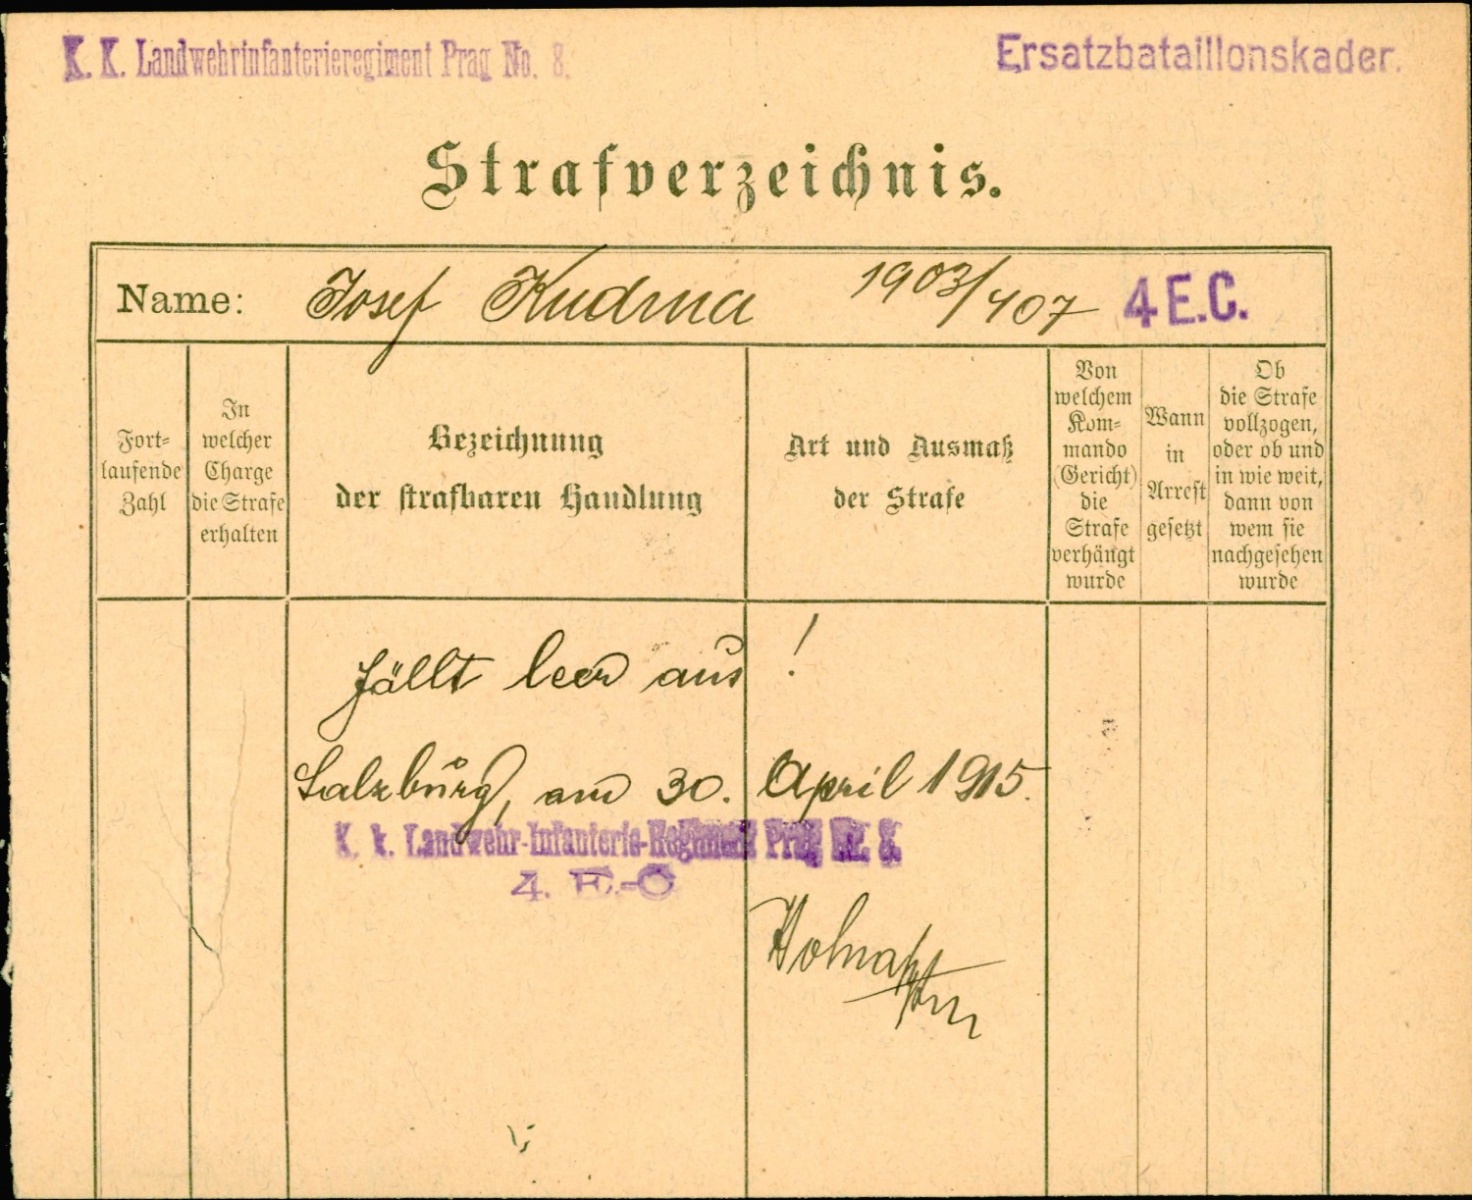 K. K. Landwehrinfanterieregiment Prag No. 8.
Ersatzbataillonskader.
Strafverzeichnis.
Name: Josef Kudrna 1903/407 4 E.C.
Fort-
laufende
Zahl
In
welcher
Charge
die Strafe
erhalten
Bezeichnung
der strafbaren Handlung
Art und Ausmaß
der Strafe
Von
welchem
Kom-
mando
(Gericht)
die
Strafe
verhängt
wurde
Wann
in
Arrest
gesetzt
Ob
die Strafe
vollzogen,
oder ob und
in wie weit,
dann von
wem sie
nachgesehen
wurde
fällt leer aus !
Salzburg, am 30. April 1915.
K. k. Landwehr-Infanterie-Regiment Prag Nr. 8.
4. E.-C